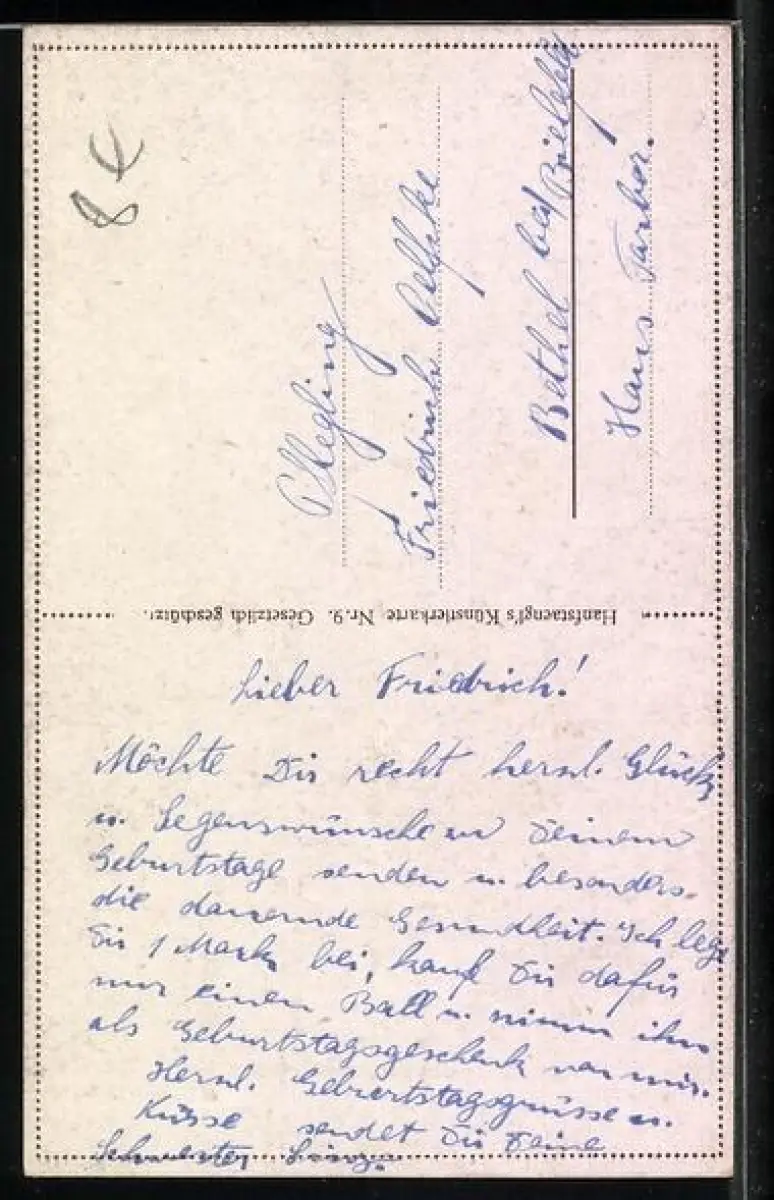 8 €
Pflegling
Friedrich Oelschke
Bethel bei Bielefeld
Hans Tabor.
Hanfstaengl's Künstlerkarte Nr. 9. Gesetzlich geschützt.
Lieber Friedrich!
Möchte Dir recht herzl. Glück
u. Segenswünsche zu Deinem
Geburtstage senden u. besonders
die dauernde Gesundheit. Ich lege
Dir 1 Mark bei, kauf Dir dafür
nur einen Ball u. nimm ihn
als Geburtstagsgeschenk von mir.
Herzl. Geburtstagsgrüsse u.
Küsse sendet Dir Deine
Schwester